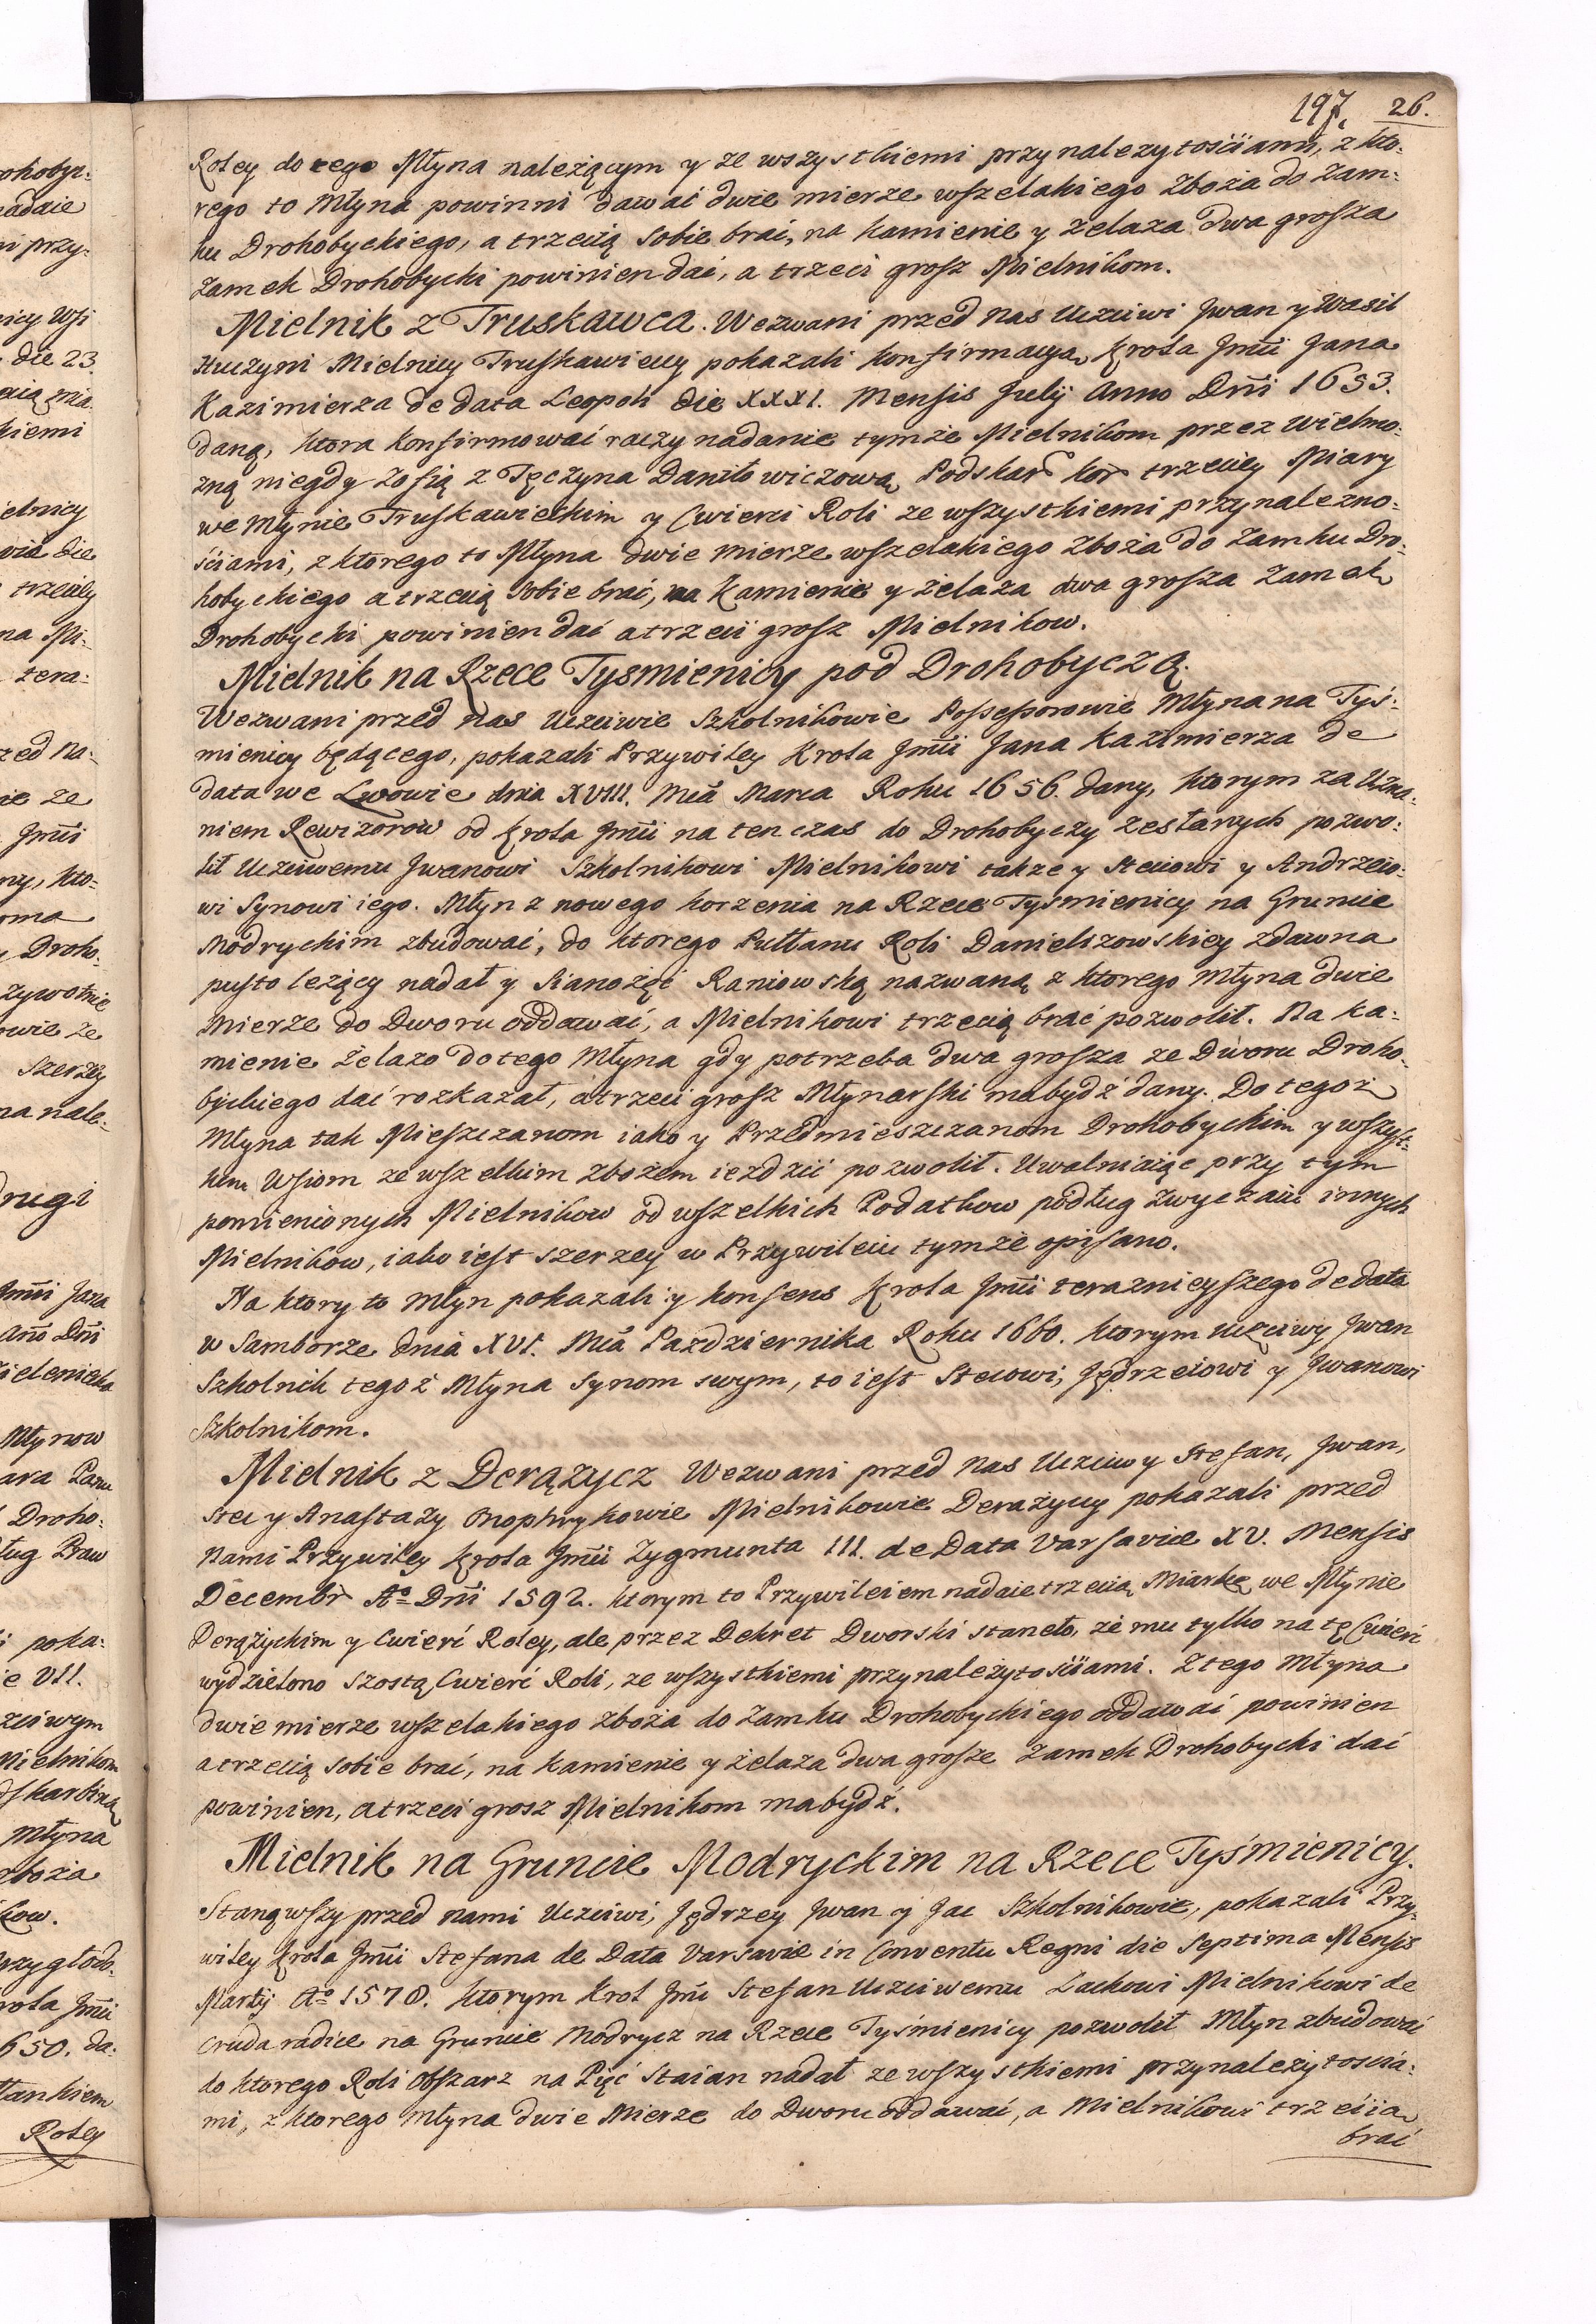 197. 26.
Roley do tego Młyna należącym y ze wszystkiemi przynależytościami, z kto:
rego to Młyna powinni dawać dwie mierze wszelakiego Zboża do Zam:
ku Drohobyckiego, a trzecią sobie brać, na Kamienie y Zelaza dwa grosza
Zamek Drohobycki powinien dać, a trzeci grosz Mielnikom.
Mielnik z Truskawca. Wezwani przed nas Uczciwi Jwan y Wasil
Huczyni Mielnicy Truskawieccy pokazali Konfirmacyą Krola Jmći Jana
Kazimierza de data Leopoli die XXXI. Mensis Julij Anno Dni 1653.
daną, ktora konfirmować raczy nadanie tymże Mielnikom przez Wielmo:
żną niegdy Zofią z Tęczyna Daniłowiczową Podskar. Kor. trzeciey Miary
we Młynie Truskawieckim y Cwierci Roli ze wszystkiemi przynalezno:
ściami, z ktorego to Młyna dwie mierze wszelakiego Zboża do Zamku Dro:
hobyckiego a trzecią sobie brać, na Kamienie y żelaza dwa grosza Zamek
Drohobycki powinien dać a trzeci grosz Mielnikow.
Mielnik na Rzece Tysmienicy pod Drohobyczą.
Wezwani przed nas Uczciwie Szkolnikowie Possessorowie Młyna na Tyś:
mienicy będącego, pokazali Przywiley Krola Jmći Jana Kazimierza de
data we Lwowie dnia XVIII. Mca Marca Roku 1656. dany, ktorym za Uzna:
niem Rewizorow od Krola Jmći na ten czas do Drohobyczy zesłanych pozwo:
lił Uczciwemu Jwanowi Szkolnikowi Mielnikowi także y Steciowi y Andrzeio:
wi Synowi iego. Młyn z nowego korzenia na Rzece Tysmienicy na Gruncie
Modryckim zbudować, do ktorego Pułłanu Roli Danieliszowskiey zdawna
pusto leżący nadał y Sianożęć Raniowską nazwaną z ktorego Młyna dwie
Mierze do Dworu oddawać, a Mielnikowi trzecią brać pozwolił. Na Ka:
mienie Żelazo do tego Młyna gdy potrzeba dwa grosza ze Dworu Droho:
byckiego dać rozkazał, a trzeci grosz Młynarski ma bydź dany. Do tegoż
Młyna tak Mieszczanom iako y Przedmieszczanom Drohobyckim y wszyst:
kim Wsiom ze wszelkim zbożem iezdzić pozwolił. Uwalniaiąc przy tym
pomienionych Mielnikow od wszelkich Podatkow podług zwyczaiu innych
Mielnikow, iako iest szerzey w Przywileiu tymże opisano.
Na ktory to Młyn pokazali y konsens Krola Jmći teraznieyszego de data
w Samborze dnia XVI. Mca Pazdziernika Roku 1660. ktorym uczciwy Jwan
Szkolnik tegoż Młyna Synom swym, to iest Steciowi, Jędrzeiowi y Jwanowi
Szkolnikom.
Mielnik z Derążycz Wezwani przed nas Uczciwy Stefan, Jwan,
Stec y Anastazy Onophrykowie Mielnikowie Derażyccy pokazali przed
nami Przywiley Krola Jmći Zygmunta III. de Data Varsaviae XV. Mensis
Decembr Ao Dni 1592. ktorym to Przywileiem nadaie trzecią Miarkę we Młynie
Derążyckim y Cwierć Roley, ale przez Dekret Dworski staneło, że mu tylko na tę Cwierć
wydzielono szostą Cwierć Roli, ze wszystkiemi przynależytościami. Z tego Młyna
dwie mierze wszelakiego zboża do Zamku Drohobyckiego oddawać powinien
a trzecią sobie brać, na kamienie y żelaza dwa grosze Zamek Drohobycki dać
powinien, a trzeci grosz Mielnikom ma bydź.
Mielnik na Gruncie Modryckim na Rzece Tyśmienicy.
Stanąwszy przed nami Uczciwi, Jędrzey Jwan y Jac Szkolnikowie, pokazali Przy:
wiley Krola Jmći Stefana de Data Varsavie in Conventu Regni die Septima Mensis
Martij Ao 1578. ktorym Krol Jmć Stefan Uczciwemu Lackowi Mielnikowi de
cruda radice na Gruncie Modrycz na Rzece Tyśmienicy pozwolił Młyn zbudować
do ktorego Roli Obszarz na Pięć Staian nadał ze wszystkiemi przynależytościa:
mi, z ktorego Młyna dwie Mierze do Dworu oddawać, a Mielnikowi trzecią
brać